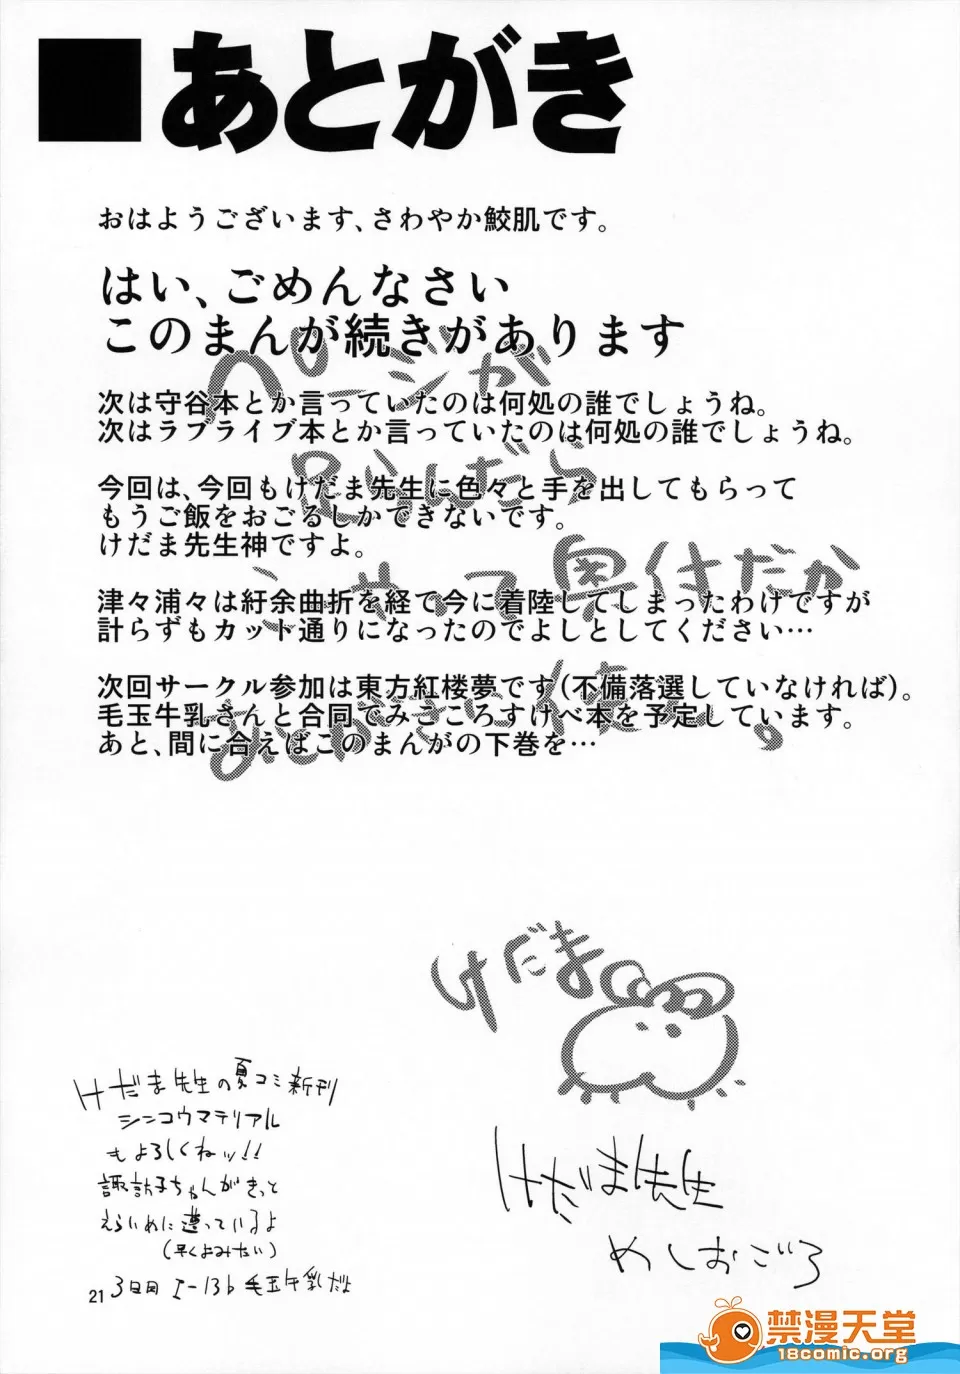 ■あとがき
おはようございます、さわやか鮫肌です。
はい、ごめんなさい
このまんが続きがあります
ページが
次は守谷本とか言っていたのは何処の誰でしょうね。
次はラブライブ本とか言っていたのは何処の誰でしょうね。
足らんだら
今回は、今回もけだま先生に色々と手を出してもらって
もうご飯をおごるしかできないです。
けだま先生神ですよ。
奥付だか
津々浦々は紆余曲折を経て今に着陸してしまったわけですが
計らずもカット通りになったのでよしとしてください…
次回サークル参加は東方紅楼夢です(不備落選していなければ)。
毛玉牛乳さんと合同でみこころすけべ本を予定しています。
あと、間に合えばこのまんがの下巻を…
けだま
けだま先生の夏コミ新刊
シンコウマテリアル
もよろしくねッ!!
諏訪子ちゃんがきっと
えらいめに遭っているよ
(早くよみたい)
3日目 I-13b 毛玉牛乳だよ
けだま先生
めしおごろ
21
禁漫天堂
18comic.org